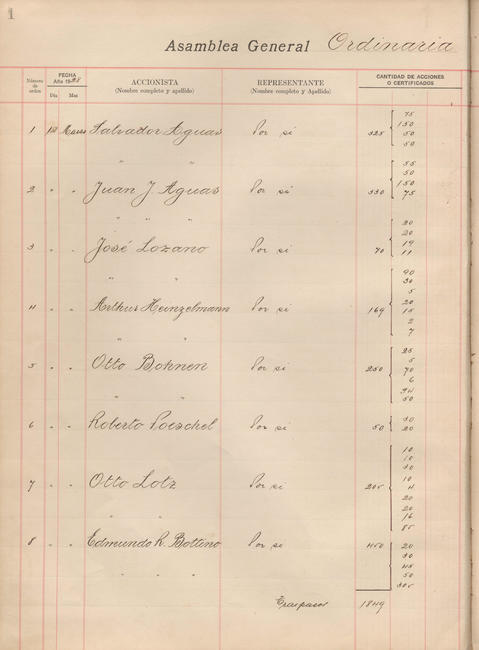 1
Asamblea General Ordinaria
Número de orden
FECHA
Año 19
Día
Mes
ACCIONISTA
(Nombre completo y apellido)
REPRESENTANTE
(Nombre completo y Apellido)
CANTIDAD DE ACCIONES
O CERTIFICADOS
1 Marzo Salvador Aguas Por si 325 75
150
50
50
" "
2 " " Juan J. Aguas Por si 330 55
50
150
75
" " "
3 " " José Lozano Por si 70 20
20
19
11
" "
4 " " Arthur Heinzelmann Por si 169 90
30
5
20
15
2
7
" "
5 " " Otto Bohnen Por si 250 25
5
70
6
94
50
" "
6 " " Roberto Poeschel Por si 50 30
20
7 " " Otto Lotz Por si 205 10
10
30
10
4
20
20
16
85
" "
8 " " Edmundo R. Bottino Por si 450 20
30
45
50
305
" "
Traspaso 1849